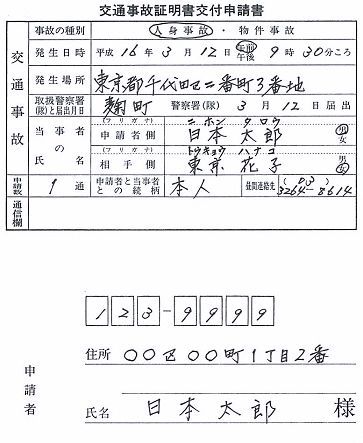 交通事故証明書交付申請書
交通事故
事故の種別 人身事故・物件事故
発生日時 平成16年3月12日 午前 午後 9時30分ころ
発生場所 東京都千代田区二番町3番地
取扱警察署(隊)と届出月日 麹町 警察署(隊) 3月12日届出
当事者の氏名
(フリガナ) ニホン タロウ
申請者側 日本 太郎 男 女
(フリガナ) トウキョウ ハナコ
相手側 東京 花子 男 女
申請数 1通 申請者と当事者との続柄 本人 昼間連絡先 (03) 3264-8614
通信欄
123-9999
申請者
住所 〇〇区〇〇町1丁目2番
氏名 日本太郎 様